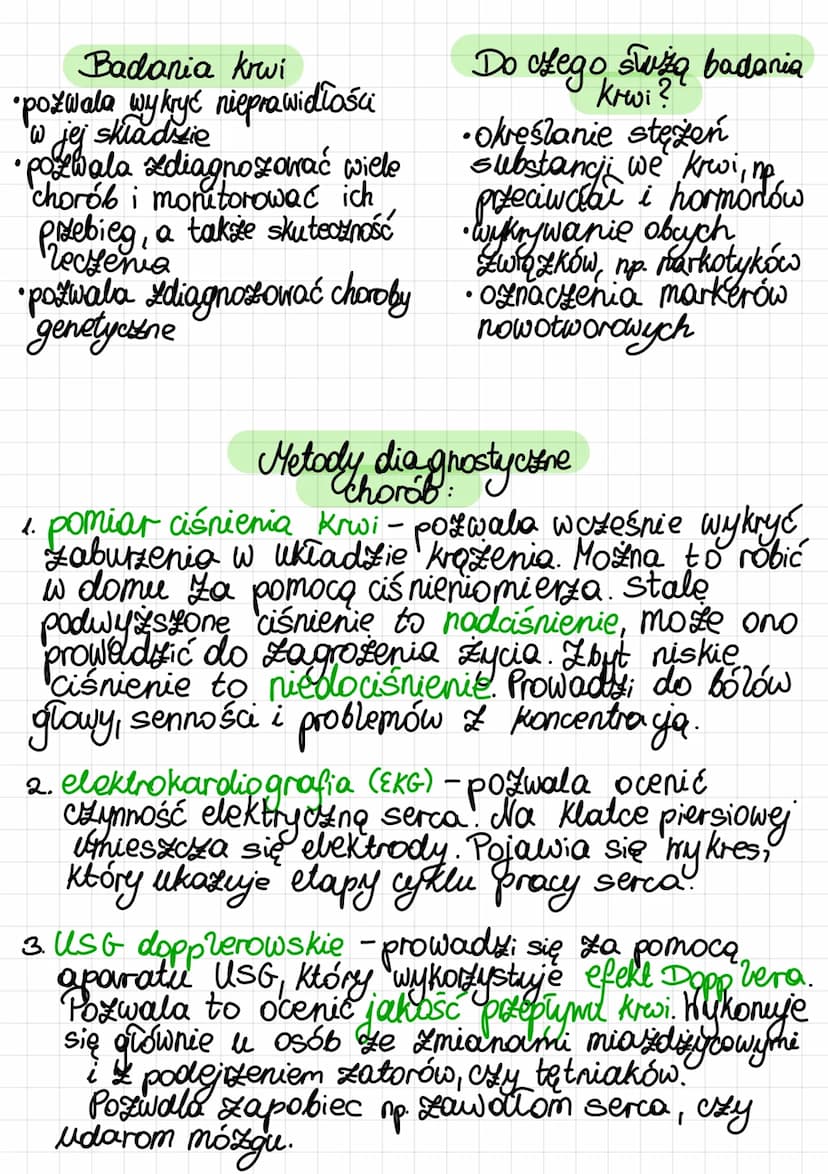 Badania krwi
•pozwala wykryć nieprawidłości
w jej składzie
•pozwala zdiagnozować wiele
chorób i monitorować ich
przebieg, a także skuteczność
leczenia
•pozwala zdiagnozować choroby
genetyczne
Do czego służą badania
krwi?
•określanie stężeń
substancji we krwi, np
przeciwciał i hormonów
•wykrywanie obcych
związków, np. narkotyków
•oznaczenia markerów
nowotworowych
Metody diagnostyczne
chorób:
1. pomiar ciśnienia krwi - pozwala wcześnie wykryć
zaburzenia w układzie krążenia. Można to robić
w domu za pomocą ciśnieniomierza. Stale
podwyższone ciśnienie to nadciśnienie, może ono
prowadzić do zagrożenia życia. Zbyt niskie
ciśnienie to niedociśnienie. Prowadzi do bólów
głowy, senności i problemów z koncentracją.
2. elektrokardiografia (EKG) - pozwala ocenić
czynność elektryczną serca. Na klatce piersiowej
umieszcza się elektrody. Pojawia się wykres,
który ukazuje etapy cyklu pracy serca.
3. USG dopplerowskie - prowadzi się za pomocą
aparatu USG, który wykorzystuje efekt Dopplera.
Pozwala to ocenić jakość przepływu krwi. Wykonuje
się głównie u osób ze zmianami miażdżycowymi
i z podejrzeniem zatorów, czy tętniaków.
Pozwala zapobiec np. zawałom serca, czy
udarom mózgu.